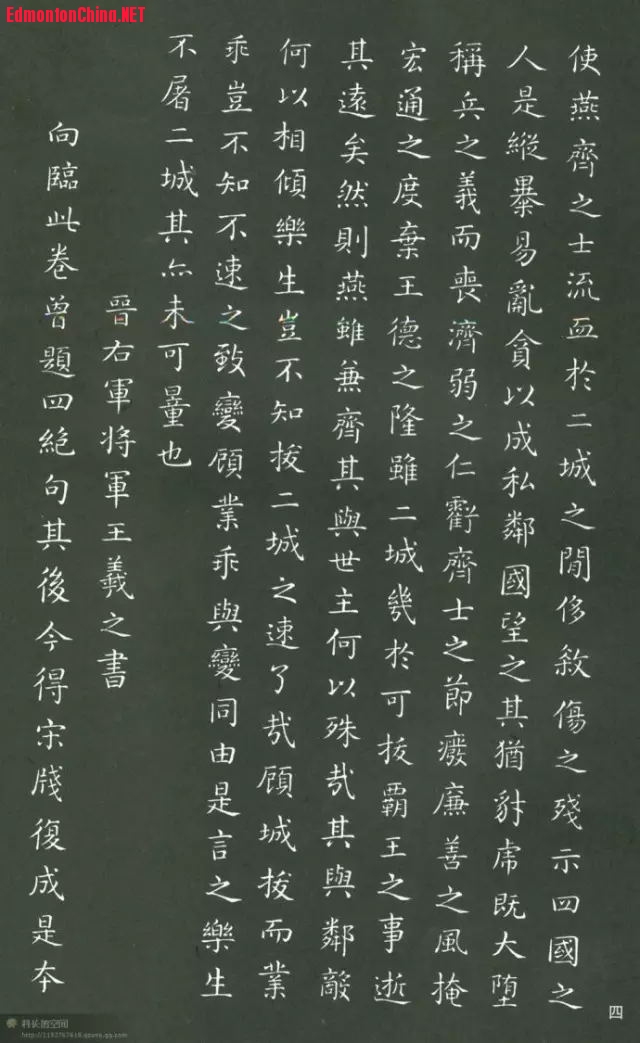 EdmontonChina.NET
使燕齊之士流血於二城之閒侈敘傷之殘示四國之
人是縱暴易亂貪以成私鄰國望之其猶豺虎既大墮
稱兵之義而喪濟弱之仁虧齊士之節癈廉善之風掩
宏通之度棄王德之隆雖二城幾於可拔霸王之事逝
其遠矣然則燕雖兼齊其與世主何以殊哉其與鄰敵
何以相傾樂生豈不知拔二城之速了哉顧城拔而業
乖豈不知不速之致變顧業乖與變同由是言之樂生
不屠二城其亦未可量也
晉右軍將軍王羲之書
向臨此卷曾題四絕句其後今得宋牋復成是本
四
科长的空间